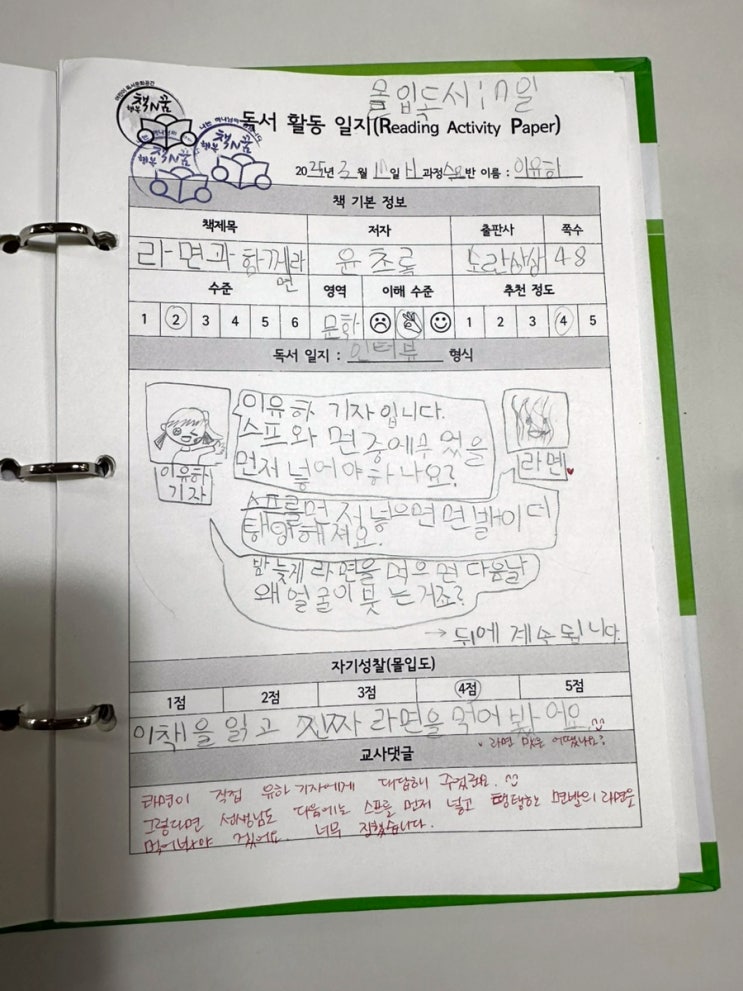 몰입독서 : 17일
책N꿈
독서 활동 일지(Reading Activity Paper)
2025년 3월 17일 H과정 수요반 이름 : 이유하
책 기본 정보
책제목 저자 출판사 쪽수
라면과 함께라면 윤초록 소란상상 48
수준 영역 이해 수준 추천 정도
1 2 3 4 5 6 문화 1 2 3 4 5
독서 일지 : 인터뷰 형식
이유하 기자입니다.
스프와 면 중에 무엇을
먼저 넣어야 하나요?
이유하
기자
라면
스프를 먼저 넣으면 면발이 더
탱탱해져요.
밤 늦게 라면을 먹으면 다음날
왜 얼굴이 붓는거죠?
→ 뒤에 계속 됩니다.
자기성찰(몰입도)
1점 2점 3점 4점 5점
이책을 읽고 진짜 라면을 먹어 봤어요
라면 맛은 어땠나요?
교사댓글
라면이 직접 유하 기자에게 대답해 주었군요.
그렇다면 선생님도 다음에는 스프를 먼저 넣고 탱탱한 면발의 라면을
먹어봐야 겠어요. 너무 잘했습니다.